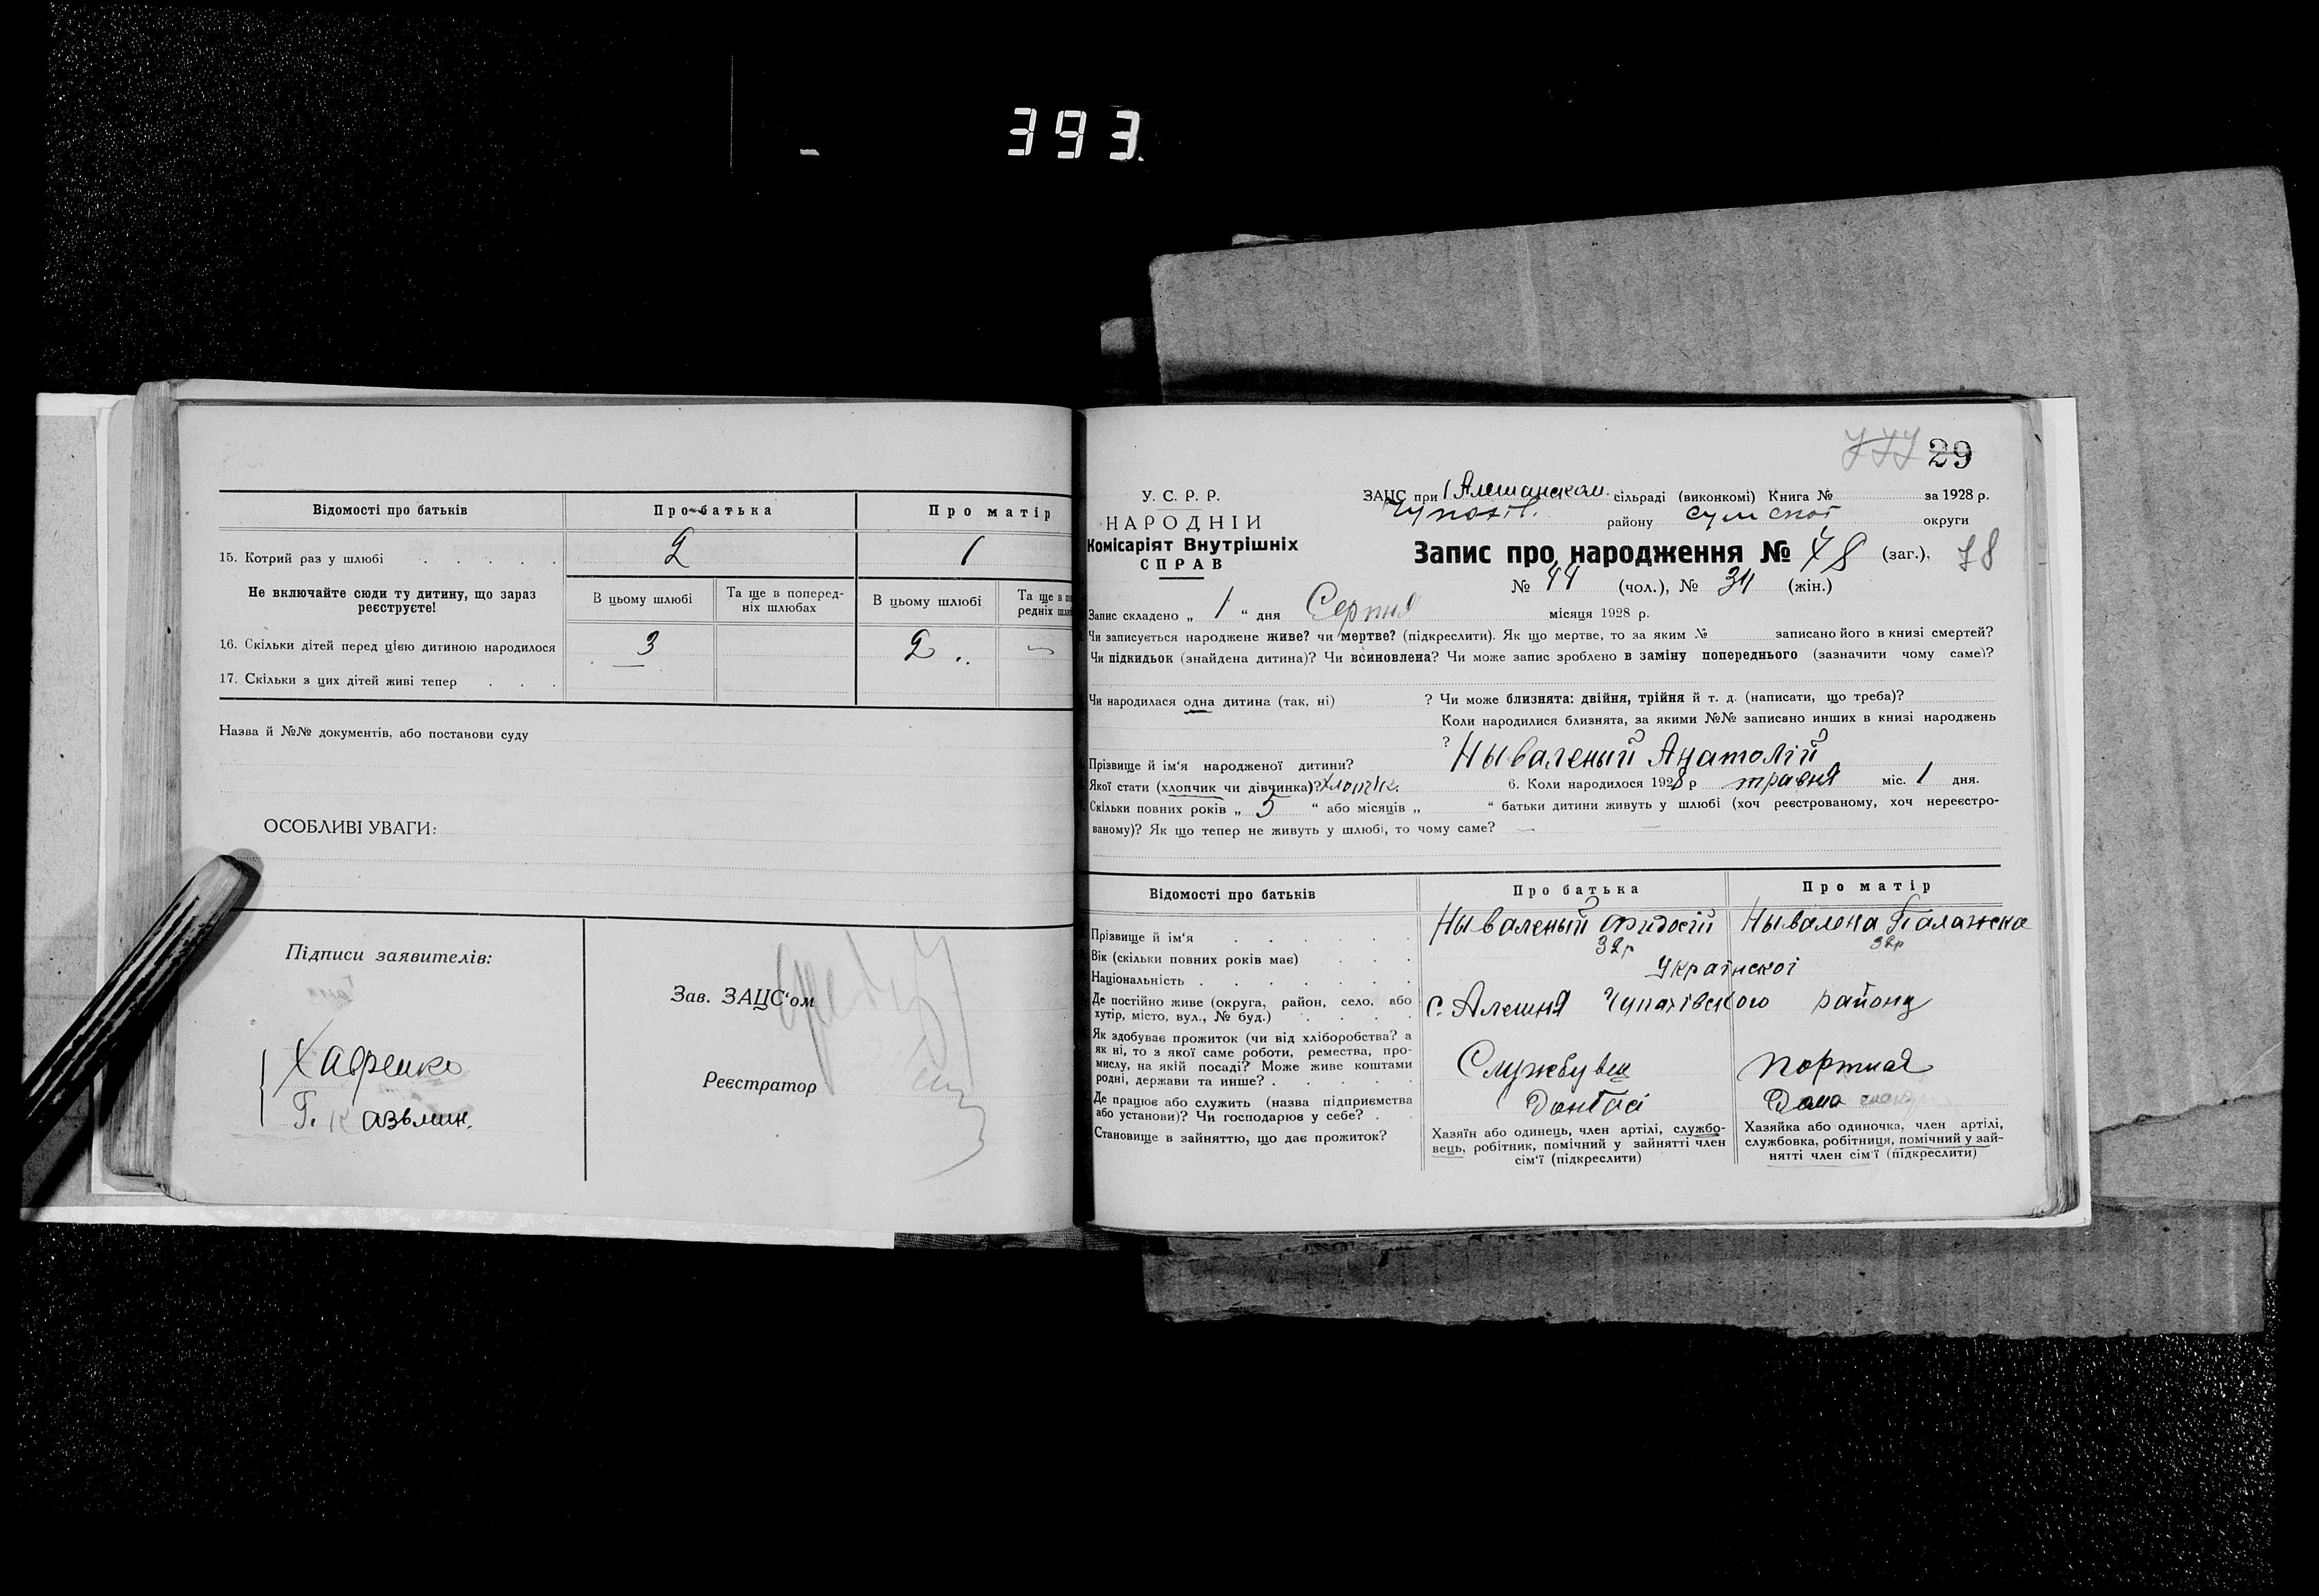 393.
Відомості про батьків
Про батька
Про матір
15. Котрий раз у шлюбі . . . . .
2
1
Не включайте сюди ту дитину, що зараз реєструєте!
В цьому шлюбі
Та ще в поперед-
ніх шлюбах
В цьому шлюбі
Та ще в
редніх
16. Скільки дітей перед цією дитиною народилося
3
2
17. Скільки з цих дітей живі тепер . . .
Назва й №№ документів, або постанови суду
ОСОБЛИВІ УВАГИ:
Підписи заявителів:
Хавренко
Зав. ЗАЦС‘ом
Реєстратор
29
У. С. Р. Р.
НАРОДНІЙ
Комісаріят Внутрішніх
СПРАВ
ЗАЦС при Алешанском сільраді (виконкомі) Книга № за 1928 р.
району Сумскої округи
Запис про народження № 78 (заг.), 78
№ 44 (чол.), № 34 (жін.)
Запис складено „ 1 “ дня Серпня місяця 1928 р.
Чи записується народжене живе? чи мертве? (підкреслити). Як що мертве, то за яким № записано його в книзі смертей?
Чи підкидьок (знайдена дитина)? Чи всиновлена? Чи може запис зроблено в заміну попереднього (зазначити чому саме)?
Чи народилася одна дитина (так, ні) ? Чи може близнята: двійня, трійня й т. д. (написати, що треба)?
Коли народилися близнята, за якими №№ записано инших в книзі народжень
?
Прізвище й ім‘я народженої дитини? Нываленый Анатолій
Якої стати (хлопчик чи дівчинка)? Хлопчик. 6. Коли народилося 1928 р травня міс. 1 дня.
Скільки повних років „ 5 “ або місяців „ “ батьки дитини живуть у шлюбі (хоч реєстрованому, хоч нереєстро-
ваному)? Як що тепер не живуть у шлюбі, то чому саме?
Відомості про батьків
Про батька
Про матір
Прізвище й ім‘я . . . . . .
Нываленый Фидосій
Нывалена Палажска
Вік (скільки повних років має) . . .
32р
32р
Національність . . . . . . .
Української
Де постійно живе (округа, район, село, або
хутір, місто, вул., № буд.) . . . .
С. Алешня Чупахівского району
Як здобуває прожиток (чи від хліборобства? а
як ні, то з якої саме роботи, ремества, про-
мислу, на якій посаді? Може живе коштами
родні, держави та инше? . . . . .
Службувец
портная
Де працює або служить (назва підприємства
або установи)? Чи господарює у себе? . .
Донбасі
Дома
Становище в зайняттю, що дає прожиток?
Хазяїн або одинець, член артілі, службо-
вець, робітник, помічний у зайнятті член
сім‘ї (підкреслити)
Хазяйка або одиночка, член артілі,
службовка, робітниця, помічний у зай-
нятті член сім‘ї (підкреслити)